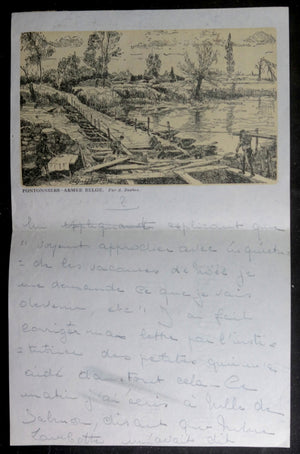 PONTONNIERS - ARMÉE BELGE. Par A. Bastien.
2
lui expliquant que
"voyant approcher avec inquiétu-
de les vacances de Noël je
me demande ce que je vais
devenir, etc" J'ai fait
corriger ma lettre par l'insti-
tutrice des petites qui m'a
aidé dans tout cela - Ce
matin j'ai écris à Mlle de
disant que
m'avait dit